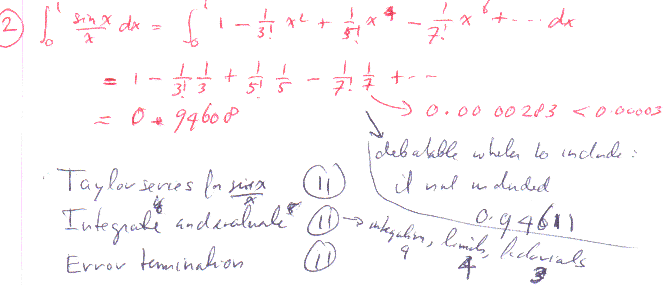 ② ∫₀¹ sin x / x dx = ∫₀¹ 1 - 1/3! x² + 1/5! x⁴ - 1/7! x⁶ + ··· dx
= 1 - 1/3! 1/3 + 1/5! 1/5 - 1/7! 1/7 + ···
→ 0.0000283 < 0.00003
= 0.94608
debatable whether to include:
if not included
0.94611
Taylor series for sin x / x (11)
Integrate and evaluate (11) → integration, limits, factorials
9 4 3
Error termination (11)